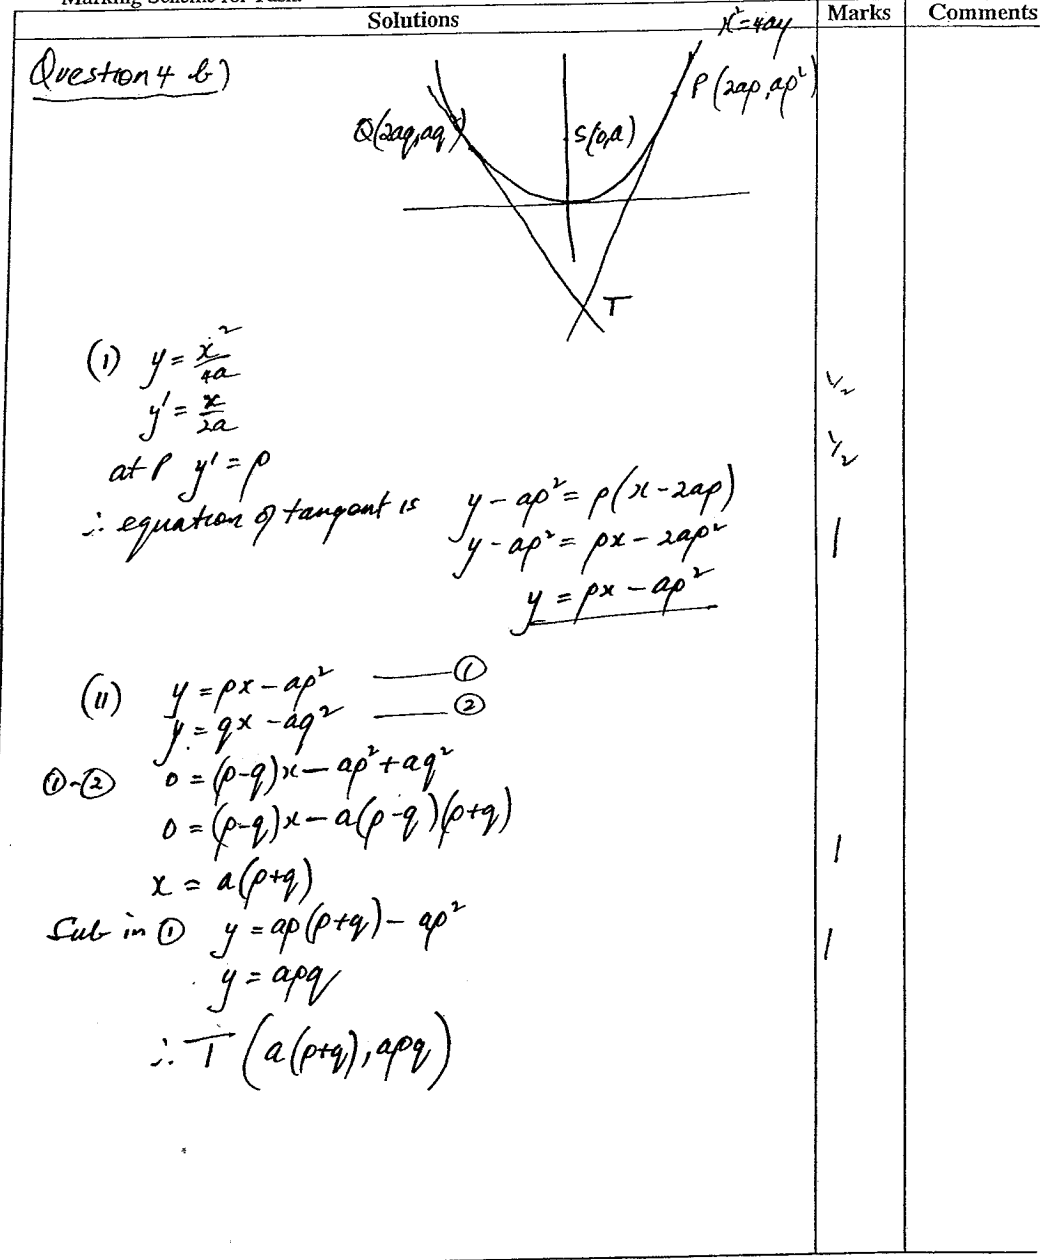 Solutions
Marks
Comments
Question 4 b)
x² = 4ay
P(2ap, ap²)
Q(2aq, aq²)
S(0,a)
T
(i) y = x²/4a
1/2
y' = x/2a
1/2
at P y' = p
∴ equation of tangent is y - ap² = p(x - 2ap)
y - ap² = px - 2ap²
1
y = px - ap²
(ii) y = px - ap² —— ①
y = qx - aq² —— ②
①-② 0 = (p-q)x - ap² + aq²
0 = (p-q)x - a(p-q)(p+q)
1
x = a(p+q)
Sub in ① y = ap(p+q) - ap²
1
y = apq
∴ T (a(p+q), apq)